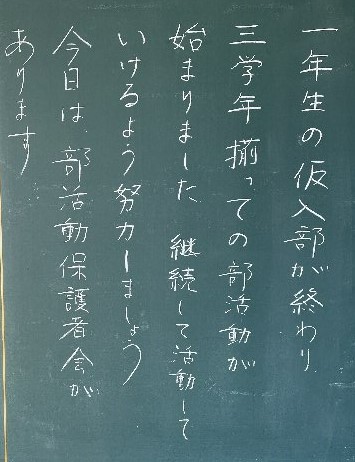 一年生の仮入部が終わり
三学年揃っての部活動が
始まりました 継続して活動して
いけるよう努力しましょう
今日は、部活動保護者会が
あります